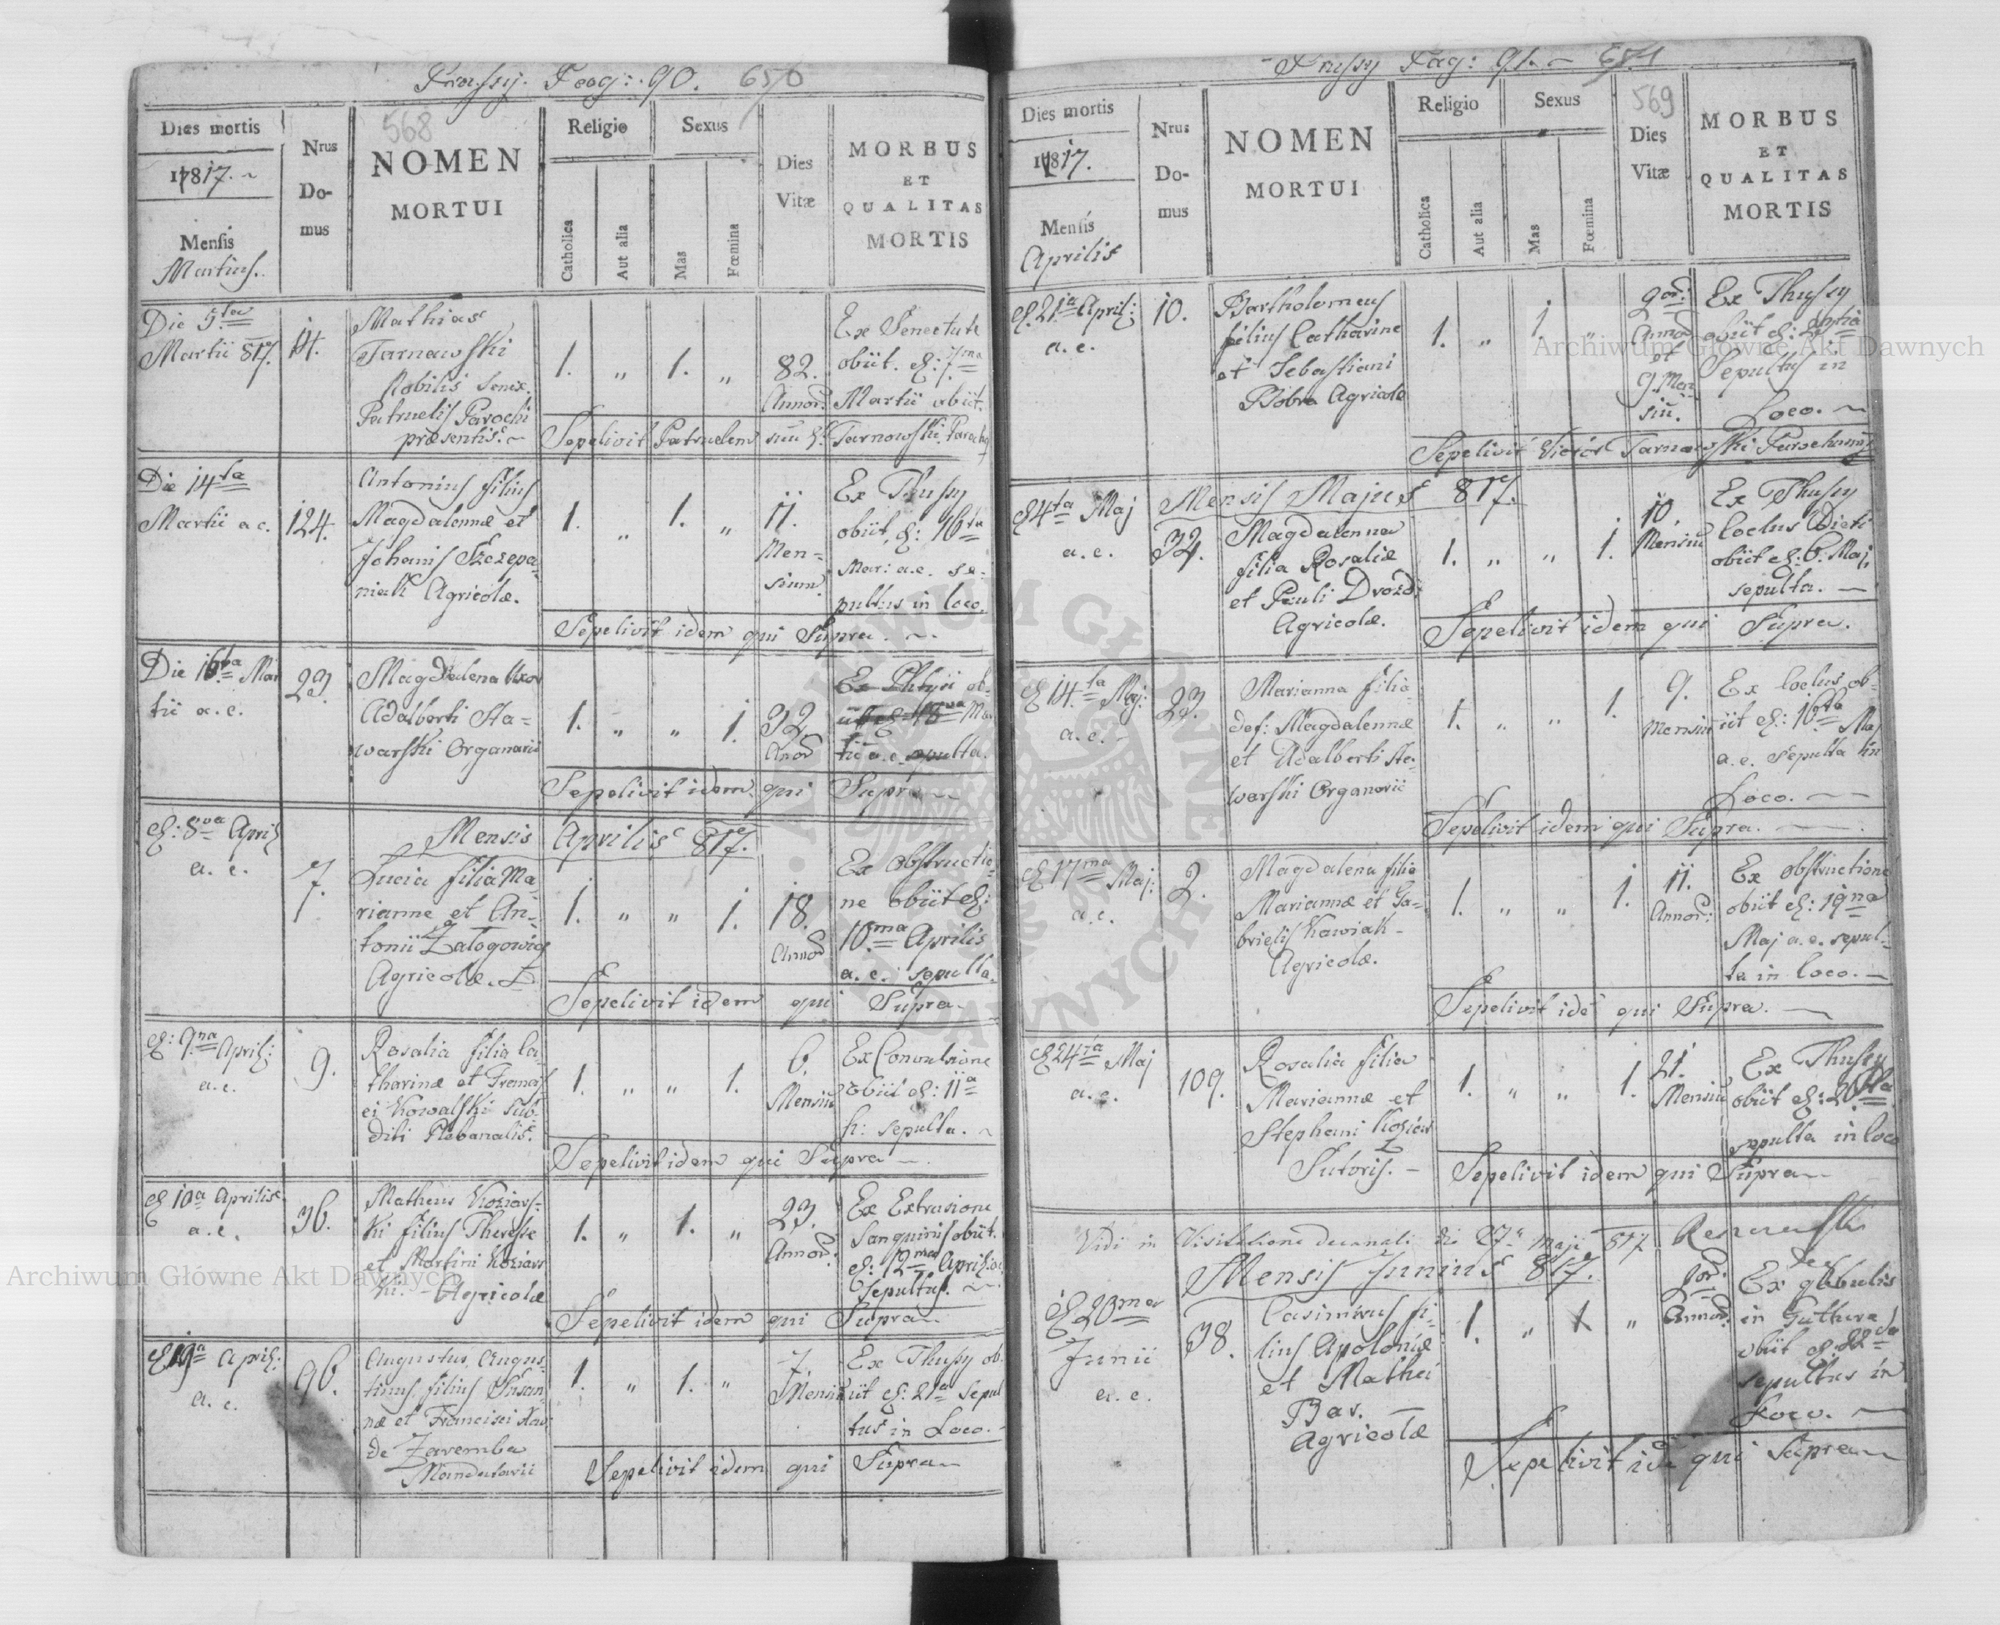 Prussy. Pag: 90. 650
568
Dies mortis
1817.
Mensis
Martius.
Nrus
Domus
NOMEN
MORTUI
Religio
Catholica
Aut alia
Sexus
Mas
Fœmina
Dies
Vitæ
MORBUS
ET
QUALITAS
MORTIS
Die 5ta
Martii 817.
14.
Mathias
Tarnawski
Nobilis Senex
Patruelis Parochi
præsentis.
1. „ 1. „
82.
Annor.
Ex Senectute
obiit. d: 7ma
Martii obiit.
Sepelivit Patruelem suu Tarnowski Parochus
Die 14ta
Martii a.c.
124.
Antonius filius
Magdalennæ et
Johanis Szczepa-
niak Agricolæ.
1. „ 1. „
11.
Men-
sium
Ex Thussy
obiit, d: 16ta
Mar: a.c. se-
pultus in loco.
Sepelivit idem qui Supra.
Die 16ta Mar
tii a.c.
23.
Magdalena Uxor
Adalberti Sta-
warski Organarii
1. „ „ 1.
32.
Annor
Ex Phtysi ob-
iit d: 18va Mar
tii a.c. sepulta.
Sepelivit idem qui Supra
d: 8va April
a. c.
7.
Mensis Aprilis 817.
Lucia filia Ma-
rianne et An-
tonii Załogowicz
Agricolæ.
1. „ „ 1.
18.
Annor
Ex obstructio-
ne obiit d:
10ma Aprilis
a. c. sepulta.
Sepelivit idem qui Supra
d: 9na April:
a.c.
9.
Rosalia filia Ca-
tharinæ et Francis
ci Kowalski Sub-
diti Plebanalis.
1. „ „ 1.
6.
Mensiu
Ex Convulsione
obiit d: 11a
h: sepulta.
Sepelivit idem qui Supra
d 10a Aprilis
a.c.
36.
Matheus Koziars-
ki filius Theresæ
et Martini Koziars
ki. Agricolæ
1. „ 1. „
23.
Annor:
Ex Extrusione
Sanguinis obiit
d: 12ma April: a.c
Sepultus.
Sepelivit idem qui Supra
d 19a April:
a. c.
96.
Augustus, Augus-
tinus, filius Susan-
næ et Francisci
de Zaremba
Mandatarii
1. „ 1. „
7.
Mensiu
Ex Thussy ob-
iit d: 21a Sepul
tus in Loco.
Sepelivit idem qui Supra
Prussy Pag: 91. 651
569
Dies mortis
1817.
Mensis
Aprilis
Nrus
Domus
NOMEN
MORTUI
Religio
Catholica
Aut alia
Sexus
Mas
Fœmina
Dies
Vitæ
MORBUS
ET
QUALITAS
MORTIS
d. 21a April:
a. c.
10.
Bartholomeus
filius Catharine
et Sebastiani
Bobra Agricolæ
1. „ 1. „
2or:
Annor
et
9. Men
siu.
Ex Thussy
obiit d:
Sepultus in
Loco.
Sepelivit Victor Tarnawski Parochus
Mensis Majus 817.
d 4ta Maj
a. c.
32.
Magdalenna
filia Rosaliæ
et Pauli Drozd:
Agricolæ.
1. „ „ 1.
10
Mensiu
Ex Thussy
loelus Dicti
obiit d: 6. Maj
sepulta.
Sepelivit idem qui Supra.
d 14.ta Maj:
a. c.
23.
Marianna filia
def: Magdalennæ
et Adalberti Sta-
warski Organarii
1. „ „ 1.
9.
Mensiu
Ex loelus ob-
iit d: 16ta Maj
a. c. sepulta in
Loco.
Sepelivit idem qui Supra.
d 17ma Maj:
a. c.
2.
Magdalena filia
Mariannæ et Ga-
brielis Kawiak
Agricolæ.
1. „ „ 1.
11.
Annor:
Ex obstructione
obiit d: 19na
Maj a.c. sepul-
ta in loco.
Sepelivit ide qui Supra.
d 24ta Maj
a. c.
109.
Rosalia filia
Mariannæ et
Stephani Koziars
Sutoris.
1. „ „ 1.
21.
Mensiu
Ex Thussy
obiit d: 26ta
sepulta in loco
Sepelivit idem qui Supra
Vidi in Visitatione decanali die 27a Maji 817
Mensis Junius 817.
d 20ma
Junii
a. c.
38.
Casimirus fi-
lius Apoloniæ
et Mathei
Bar.
Agricolæ
1. „ 1 „
2or:
Annor.
Ex globulis
in Guthure
obiit d. 22da
sepultus in
Loco.
Sepelivit ide qui Supra
Archiwum Główne Akt Dawnych
Archiwum Główne Akt Dawnych
ARCHIWUM GŁÓWNE AKT DAWNYCH